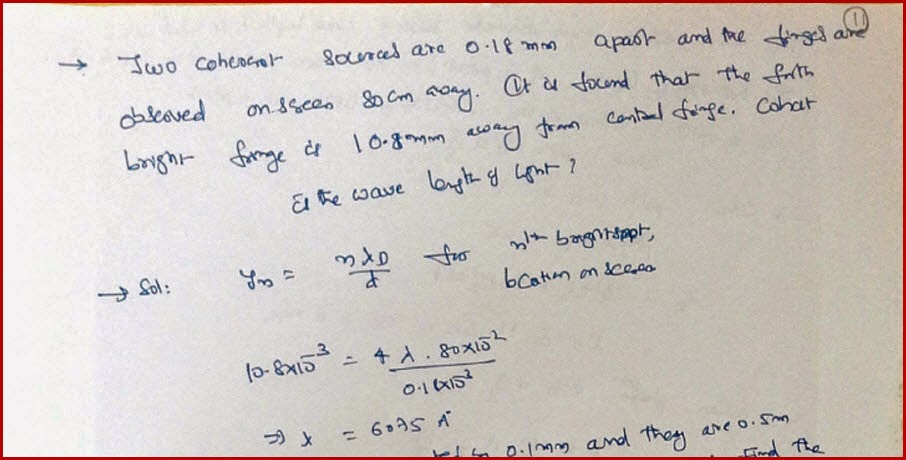 ①
→ Two coherent sources are 0.18 mm apart and the fringes are
observed on screen 80 cm away. It is found that the forth
bright fringe is 10.8 mm away from central fringe. What
is the wave length of light ?
→ Sol: yn = nλD/d for nth bright spot,
location on screen
10.8x10^-3 = 4 λ . 80x10^-2 / 0.18x10^-3
⇒ λ = 6075 A°
0.1mm and they are 0.5m
Find the